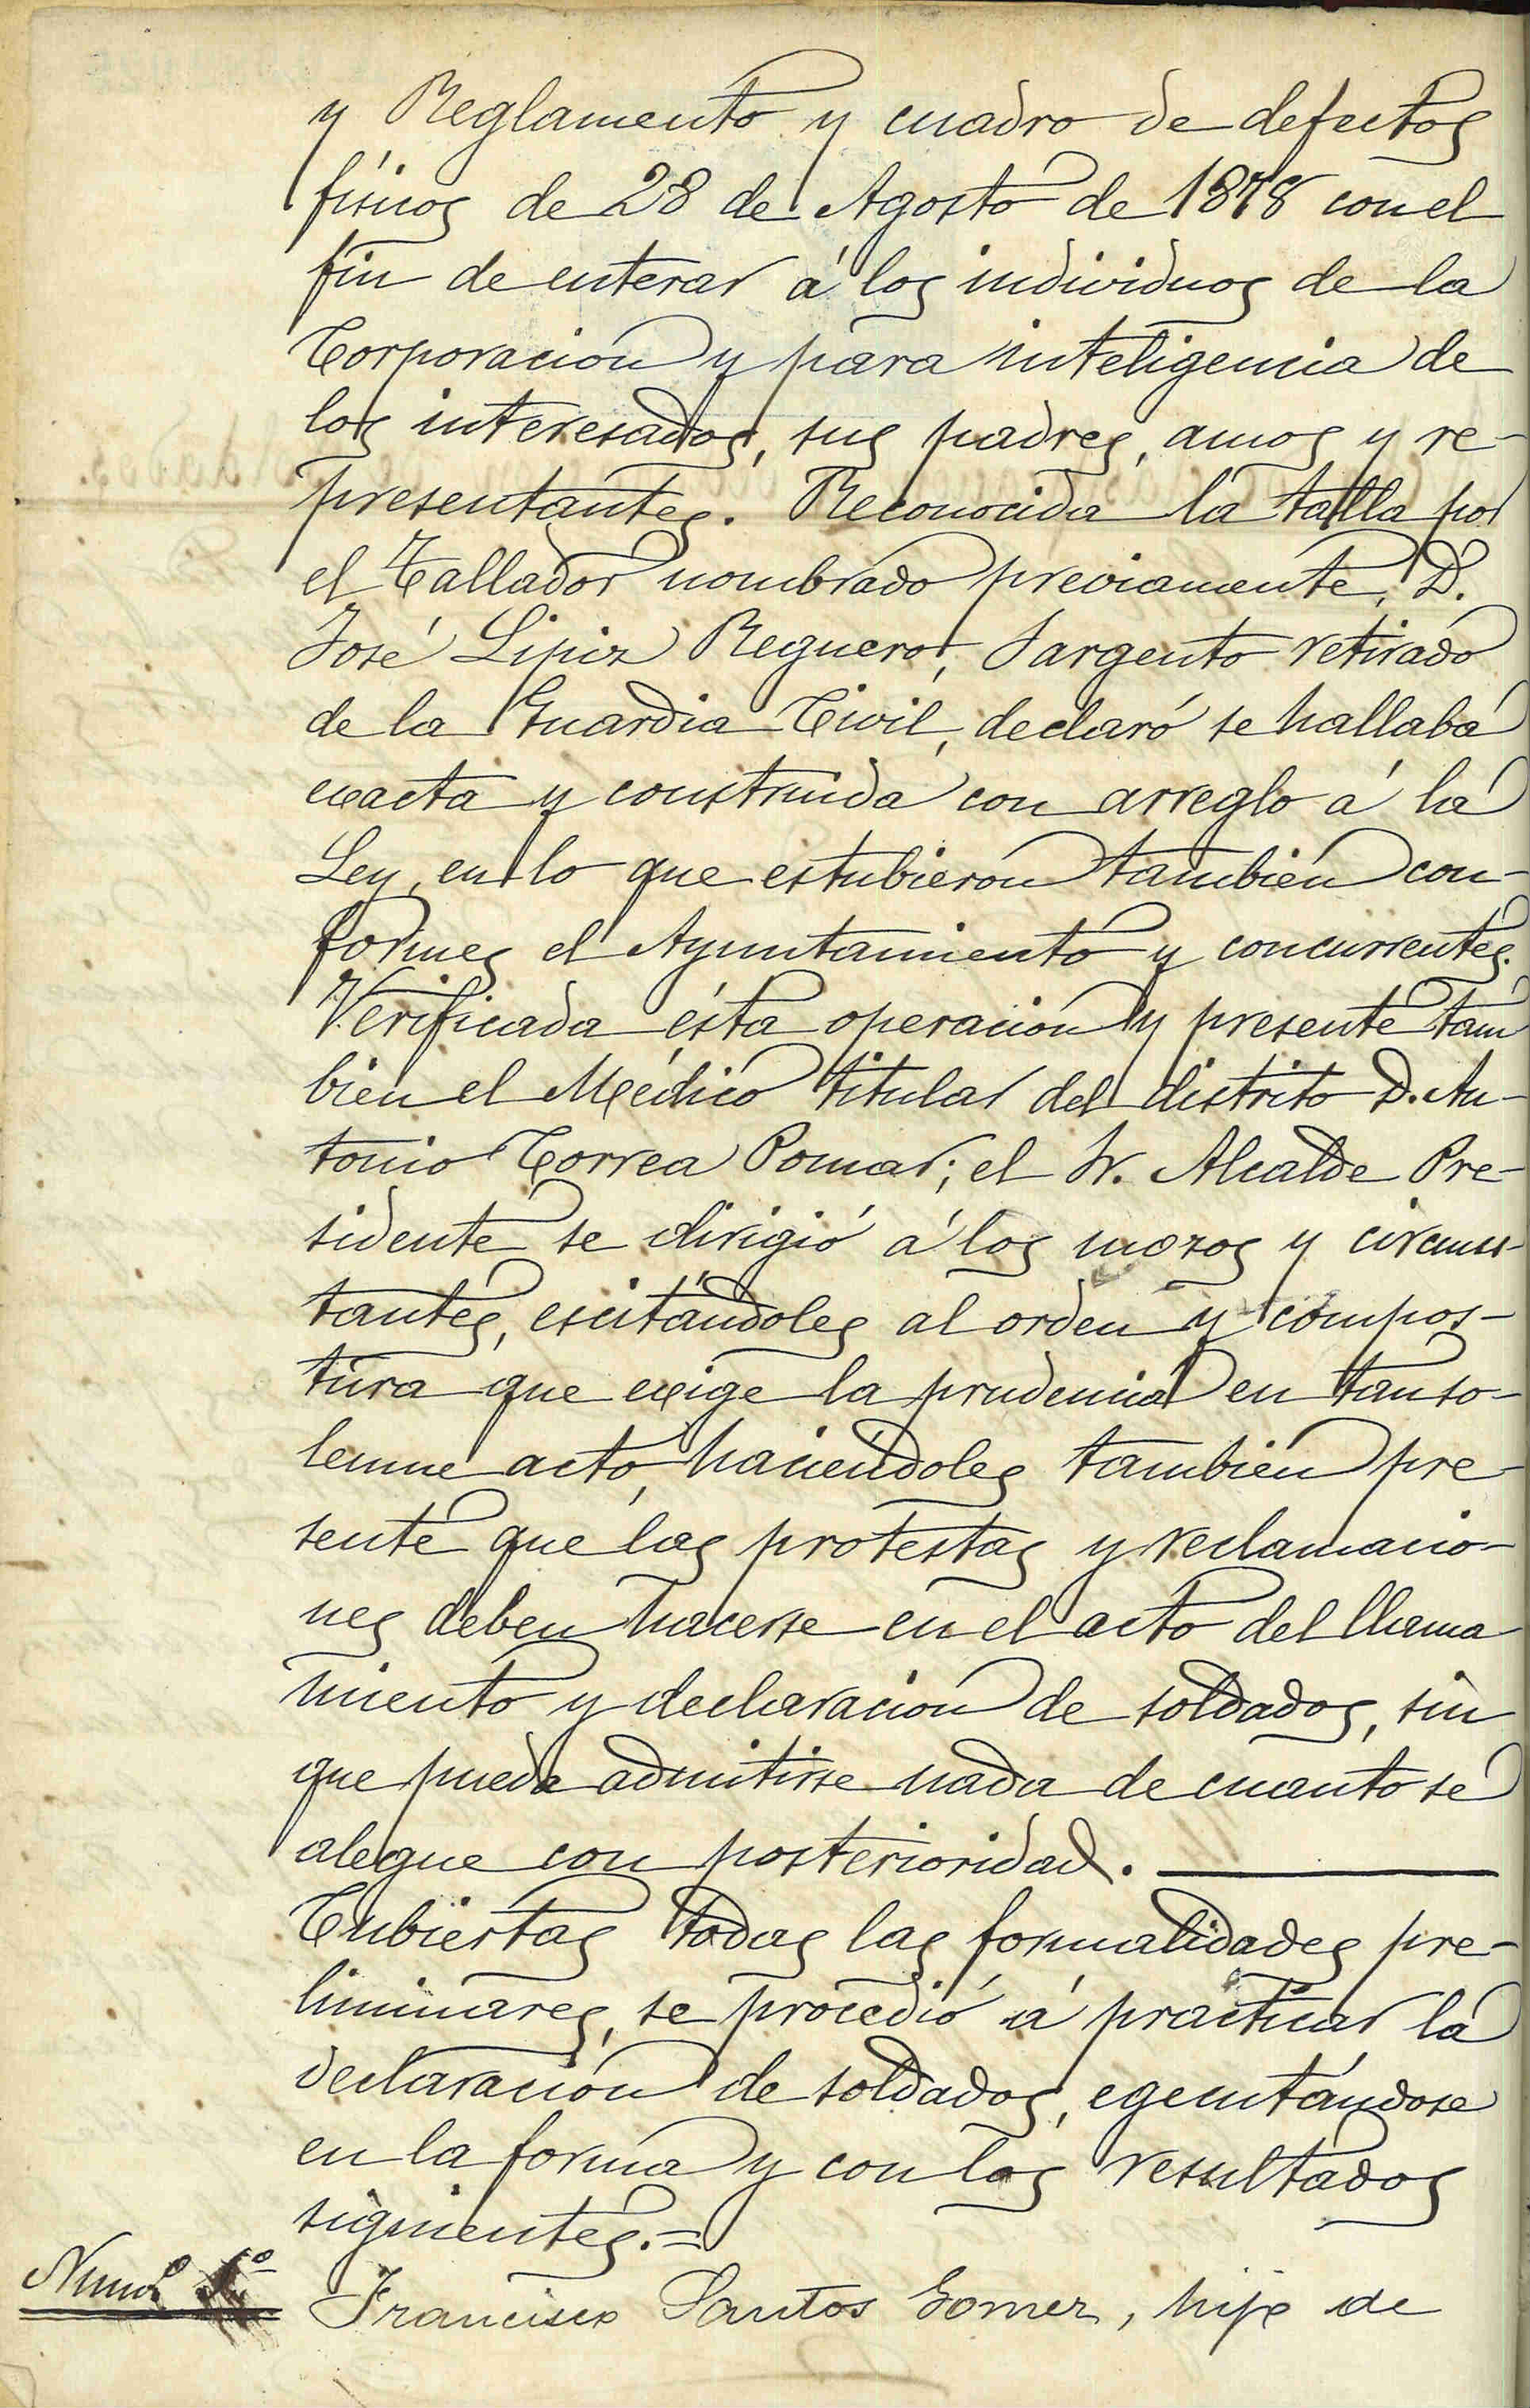 y Reglamento y cuadro de defectos
físicos de 28 de Agosto de 1878 con el
fin de enterar á los individuos de la
Corporación y para inteligencia de
los interesados, sus padres, amos y re-
presentantes. Reconocida la talla por
el Tallador nombrado previamente, D.
José Lipiz Reguero, Sargento retirado
de la Guardia Civil, declaró se hallaba
exacta y construida con arreglo á la
Ley, en lo que estubieron también con-
formes el Ayuntamiento y concurrentes.
Verificada ésta operación y presente tam
bien el Médico titular del distrito D. An-
tonio Correa Pomar; el Sr. Alcalde Pre-
sidente se dirigió á los mozos y circuns-
tantes, escitándoles al orden y compos-
tura que exige la prudencia en tan so-
lemne acto, haciéndoles también pre-
sente que las protestas y reclamacio-
nes deben hacerse en el acto del llama
miento y declaración de soldados, sin
que pueda admitirse nada de cuanto se
alegue con posterioridad.
Cubiertas todas las formalidades pre-
liminares, se procedió á practicar la
declaración de soldados, egecutándose
en la forma y con los resultados
siguientes.=
Numo. 1º
Francisco Santos Gomez, hijo de